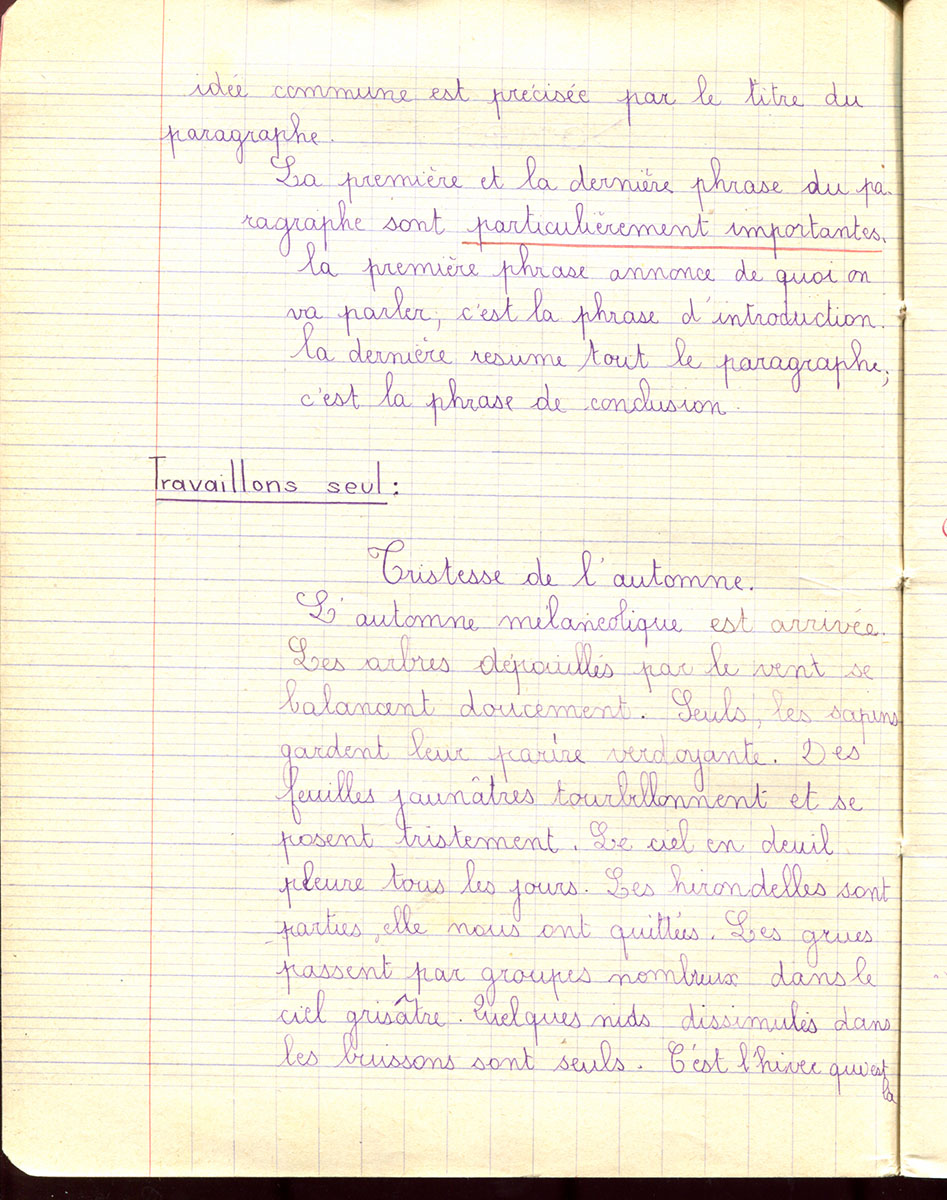 idée commune est précisée par le titre du
paragraphe.
La première et la dernière phrase du pa-
ragraphe sont particulièrement importantes.
la première phrase annonce de quoi on
va parler, c'est la phrase d'introduction.
la dernière resume tout le paragraphe,
c'est la phrase de conclusion.
Travaillons seul :
Tristesse de l'automne.
L'automne mélancolique est arrivée.
Les arbres dépouillés par le vent se
balancent doucement. Seuls, les sapins
gardent leur verdoyante. Des
feuilles jaunâtres tourbillonnent et se
posent tristement. Le ciel en deuil
pleure tous les jours. Les hirondelles sont
parties, elle nous ont quittées. Les grues
passent par groupes nombreux dans le
ciel grisâtre. Quelques nids dissimulés dans
les buissons sont seuls. C'est l'hiver qui est
là